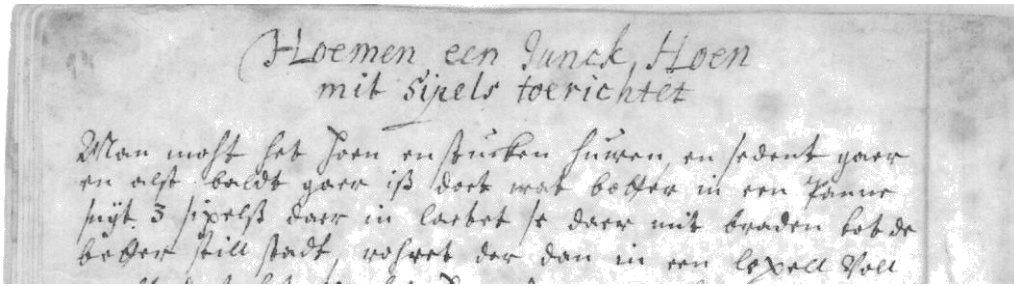 Hoemen een Junck Hoen
mit Sipels toerichtet
Man moht het Hoen en stucken huwen, en sedent gaer
en alst baldt gaer iß doet wat botter in een Panne
snÿt 3 sipelß daer in laetet se daer mit braden bet de
botter still stadt, rohret der dan in een lepell Voll